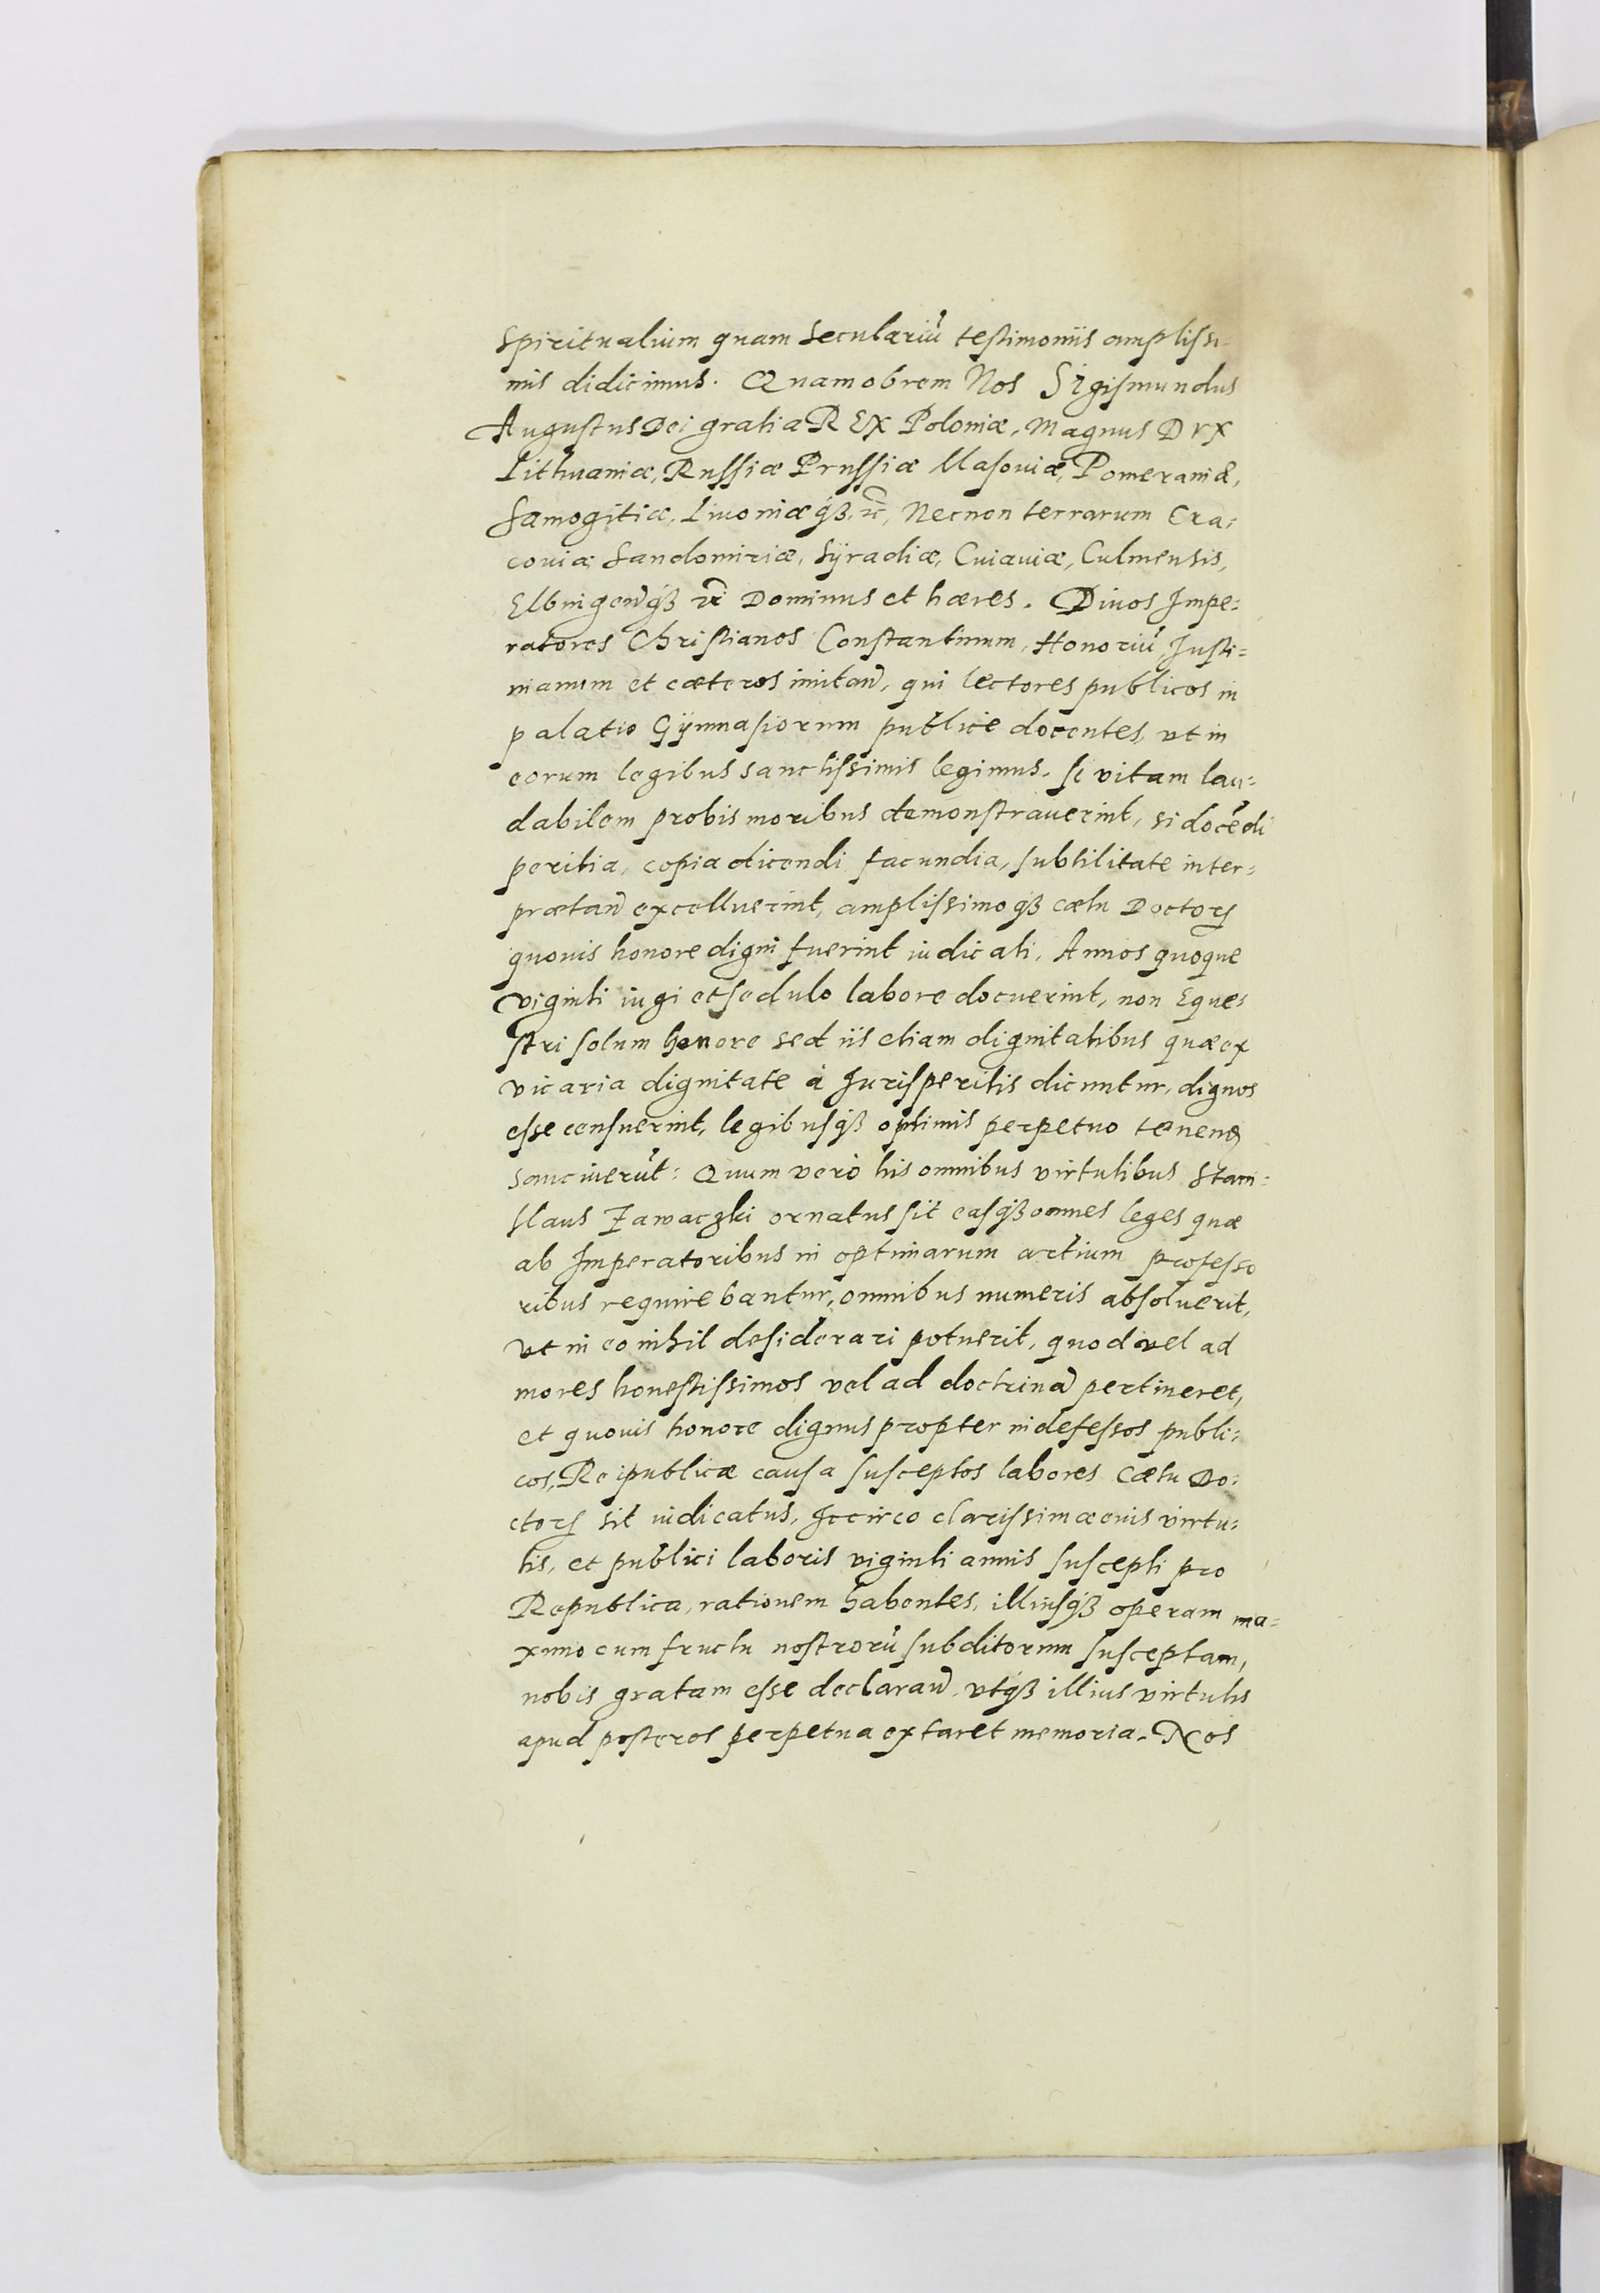 spiritualium quam seculariū testimoniis amplissi-
mis didicimus. Quamobrem Nos Sigismundus
Augustus Dei gratia REX Poloniæ, Magnus DVX
Lithuaniæ, Russiæ Prussiæ Masouiæ, Pomeraniæ,
Samogitiæ, Liuoniæq́ꝫ, ꝛc̄, Necnon terrarum Cra-
couiæ Sandomiriæ, Sÿradiæ, Cuiauiæ, Culmensis,
Elbingen̄q́ꝫ ꝛc̄ Dominus et hæres. Diuos Impe-
ratores Christianos Constantinum, Honoriū, Justi-
nianum et cæteros imitan̄, qui lectores publicos in
palatio Gÿmnasiorum publice docentes, vt in
eorum legibus sanctissimis legimus, si vitam lau-
dabilem probis moribus demonstrauerint, si docēdi
peritia, copia dicendi facundia, subtilitate inter-
prætan̄ excelluerint, amplissimoq́ꝫ cætu Doctorꝝ
quouis honore digni fuerint iudicati, Annos quoque
viginti iugi et sedulo labore docuerint, non Eque-
stri solum honore sed iis etiam dignitatibus quæ ex
vicaria dignitate à Jurisperitis dicuntur, dignos
esse censuerint, legibusq́ꝫ optimis perpetuo tenendꝭ
sanciuerūt: Quum verò his omnibus virtutibus Stani-
slaus Zawaczki ornatus sit easq́ꝫ omnes leges quæ
ab Imperatoribus in optimarum artium professo
ribus requirebantur, omnibus numeris absoluerit,
vt in eo nihil desiderari potuerit, quod vel ad
mores honestissimos vel ad doctrinā pertineret,
et quouis honore dignus propter indefessos publi-
cos, Reipublicæ causa susceptos labores Cætu Do-
ctorꝝ sit iudicatus, Iccirco clarissimæ eius virtu-
tis, et publici laboris viginti annis suscepti pro
Republica, rationem habentes, illiusq́ꝫ operam ma-
ximo cum fructu nostrorū subditorum susceptam,
nobis gratam esse declaran̄, vtq́ꝫ illius virtutis
apud posteros perpetua extaret memoria. Nos